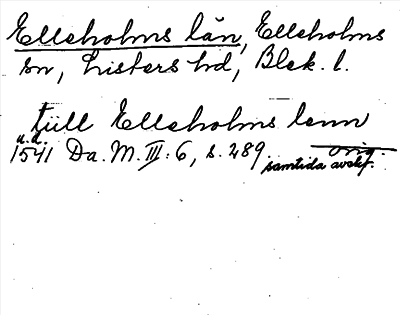 Elleholms län, Elleholms
sn, Listers hd, Blek. l.
tiill Elleholms lenn
u.d.
1541 Da. M. III: 6, s. 289. orig.
samtida avskr.